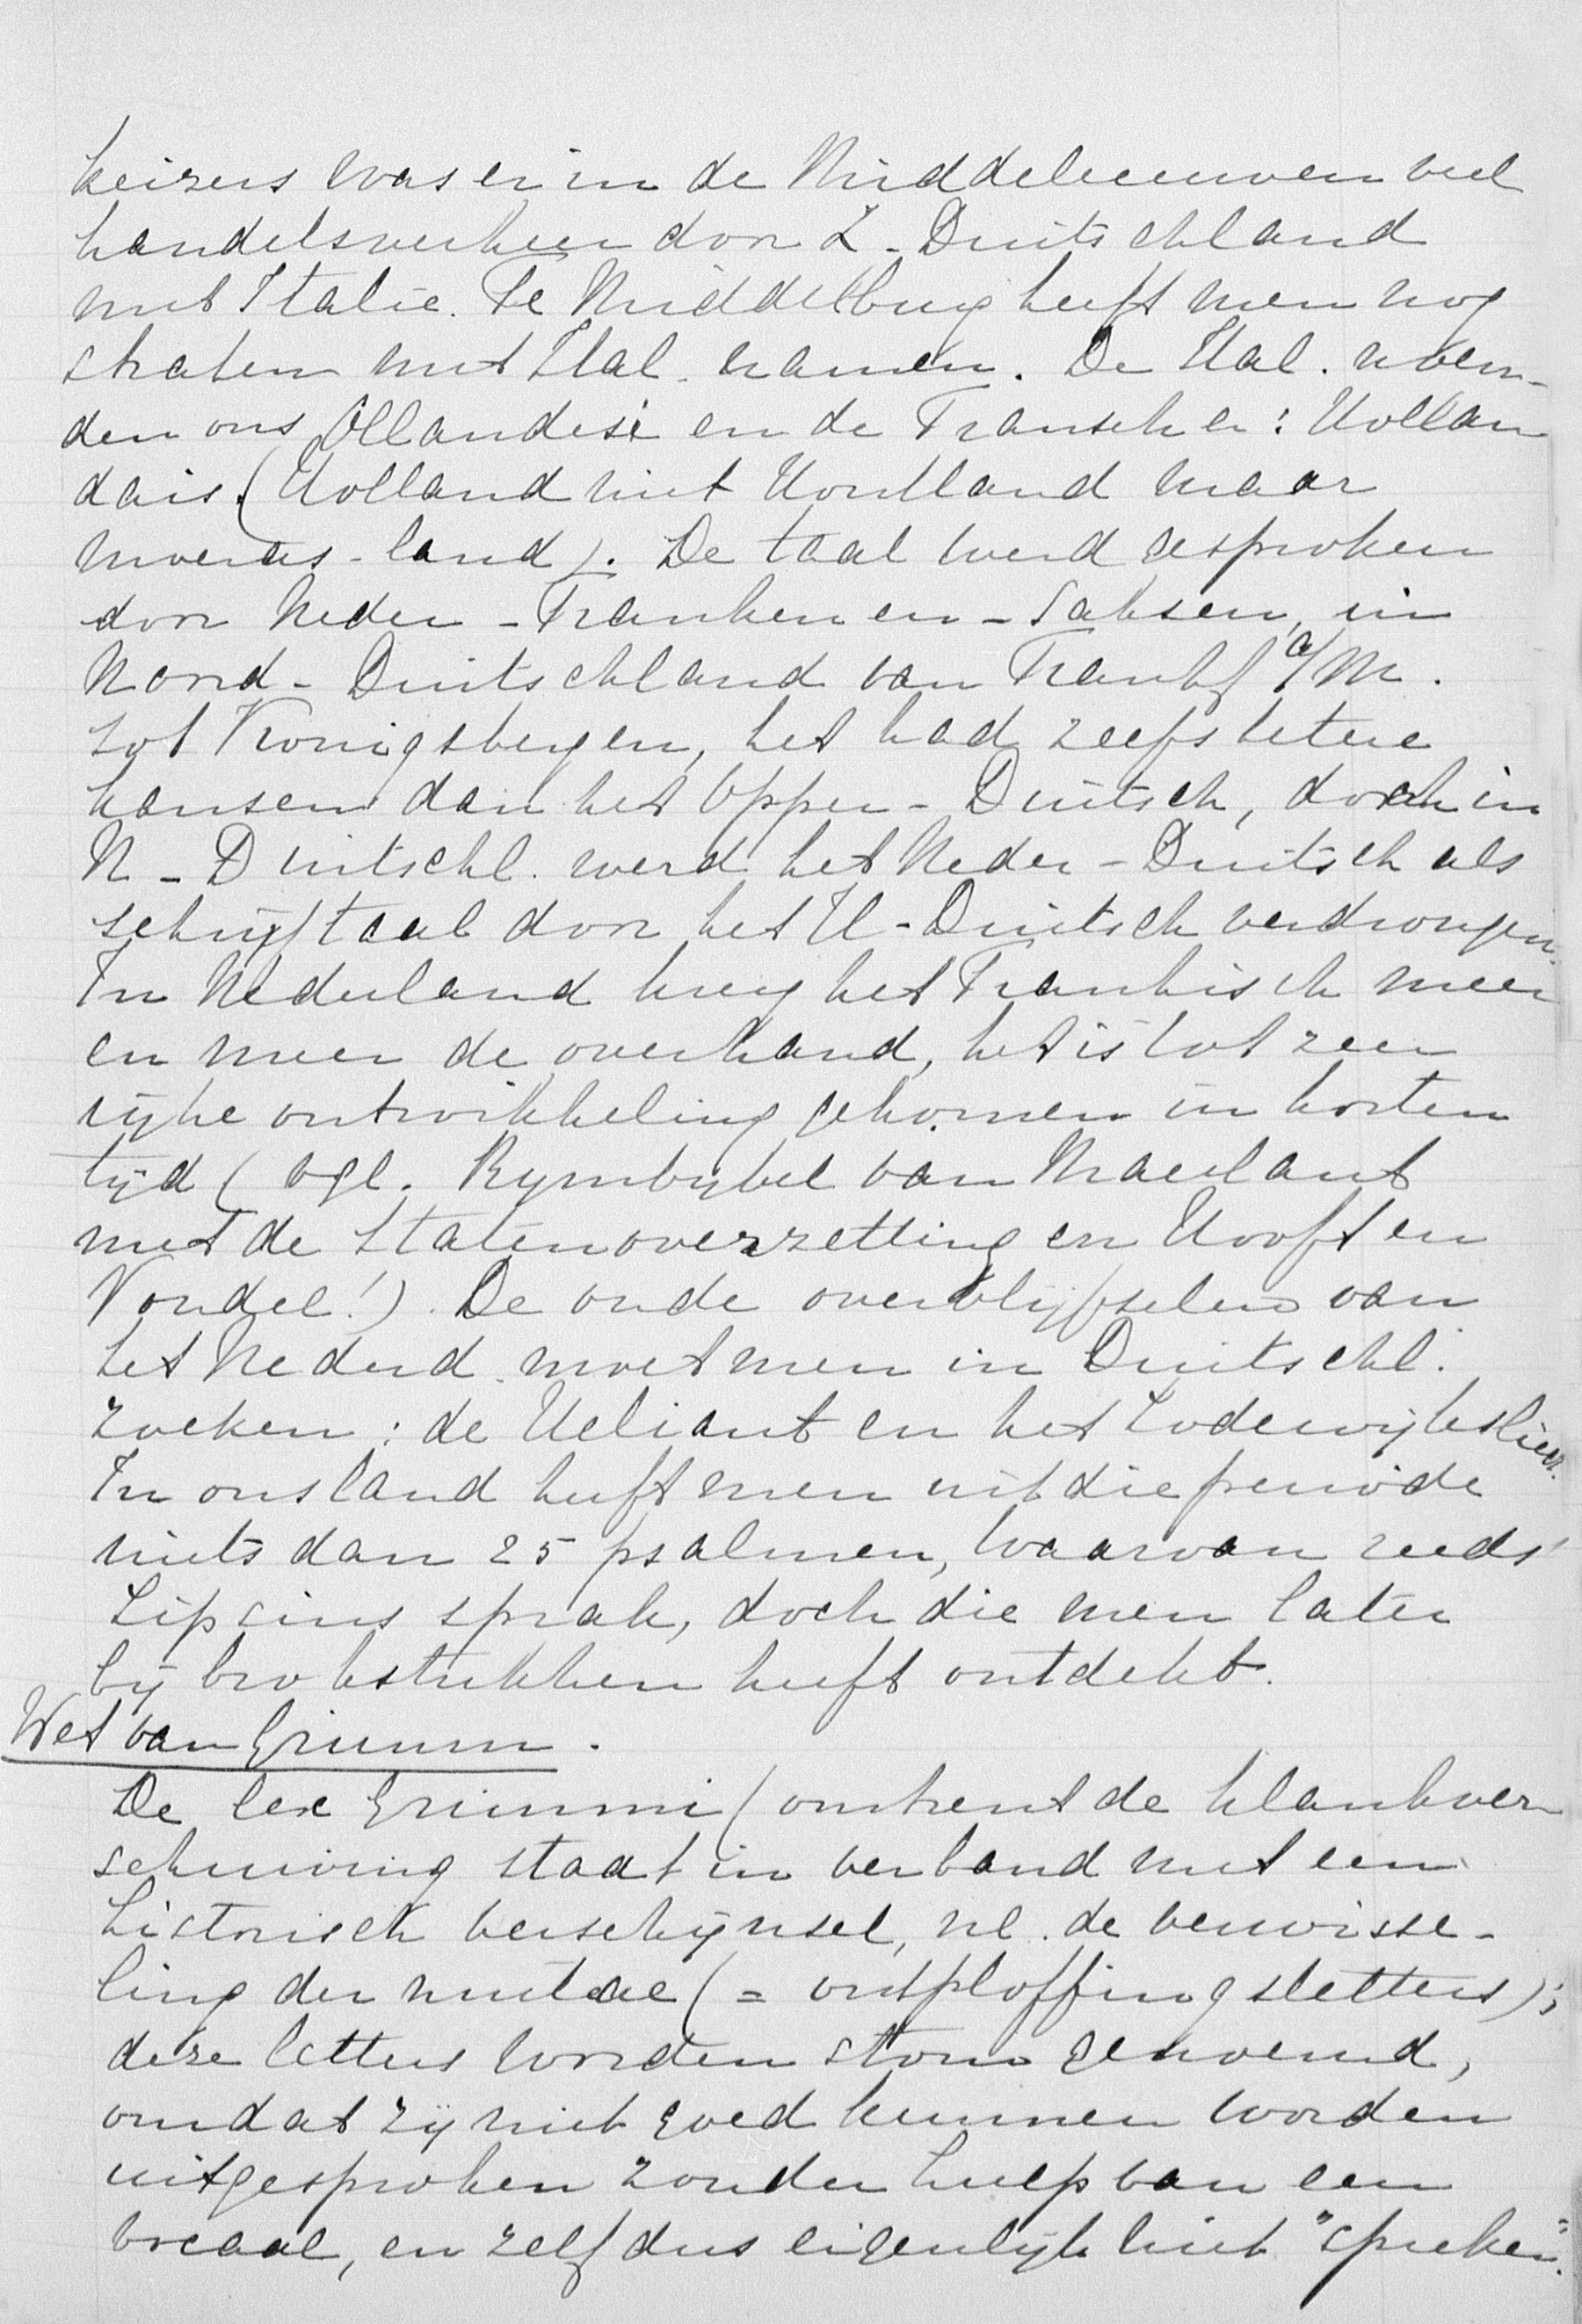 keizers was er in de Middeleeuwen veel
handelsverkeer door Z-Duitschland
met Italië. Te Middelburg heeft men nog
straten met Ital. namen. De Ital. noem-
den ons Ollandesi en de Franschen: Hollan
dais. (Holland niet Houtland maar
moeras-land). De taal werd gesproken
door Neder-Franken en -Saksen, in
Noord-Duitschland van Frankf a/M.
tot Koningsbergen, het had zelfs betere
kansen dan het Opper-Duitsch, doch in
N-Duitschl. werd het Neder-Duitsch als
schrijftaal door het H-Duitsch verdrongen.
In Nederland kreeg het Frankisch meer
en meer de overhand, het is tot zeer
rijke ontwikkeling gekomen in korten
tijd (vgl. Rymbybel van Maerlant
met de Statenoverzetting en Hooft en
Vondel!). De oude overblijfselen van
het Nederd. moet men in Duitschl.
zoeken: de Heliant en het Lodewijkslied.
In ons land heeft men uit die periode
niets dan 25 psalmen, waarvan reeds
Lipsius sprak, doch die men later
bij brokstukken heeft ontdekt.
Wet van Grimm.
De lex Grimmi (omtrent de klankver
schuiving staat in verband met een
historisch verschijnsel, nl. de verwisse-
ling der mutae (= ontploffingsletters);
deze letters worden stom genoemd,
omdat zij niet goed kunnen worden
uitgesproken zonder hulp van een
vocaal, en zelf dus eigenlijk niet "spreken".